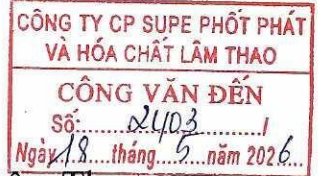 CÔNG TY CP SUPE PHỐT PHÁT
VÀ HÓA CHẤT LÂM THAO
CÔNG VĂN ĐẾN
Số:........2403......../
Ngày.18....tháng...5...năm 2026...